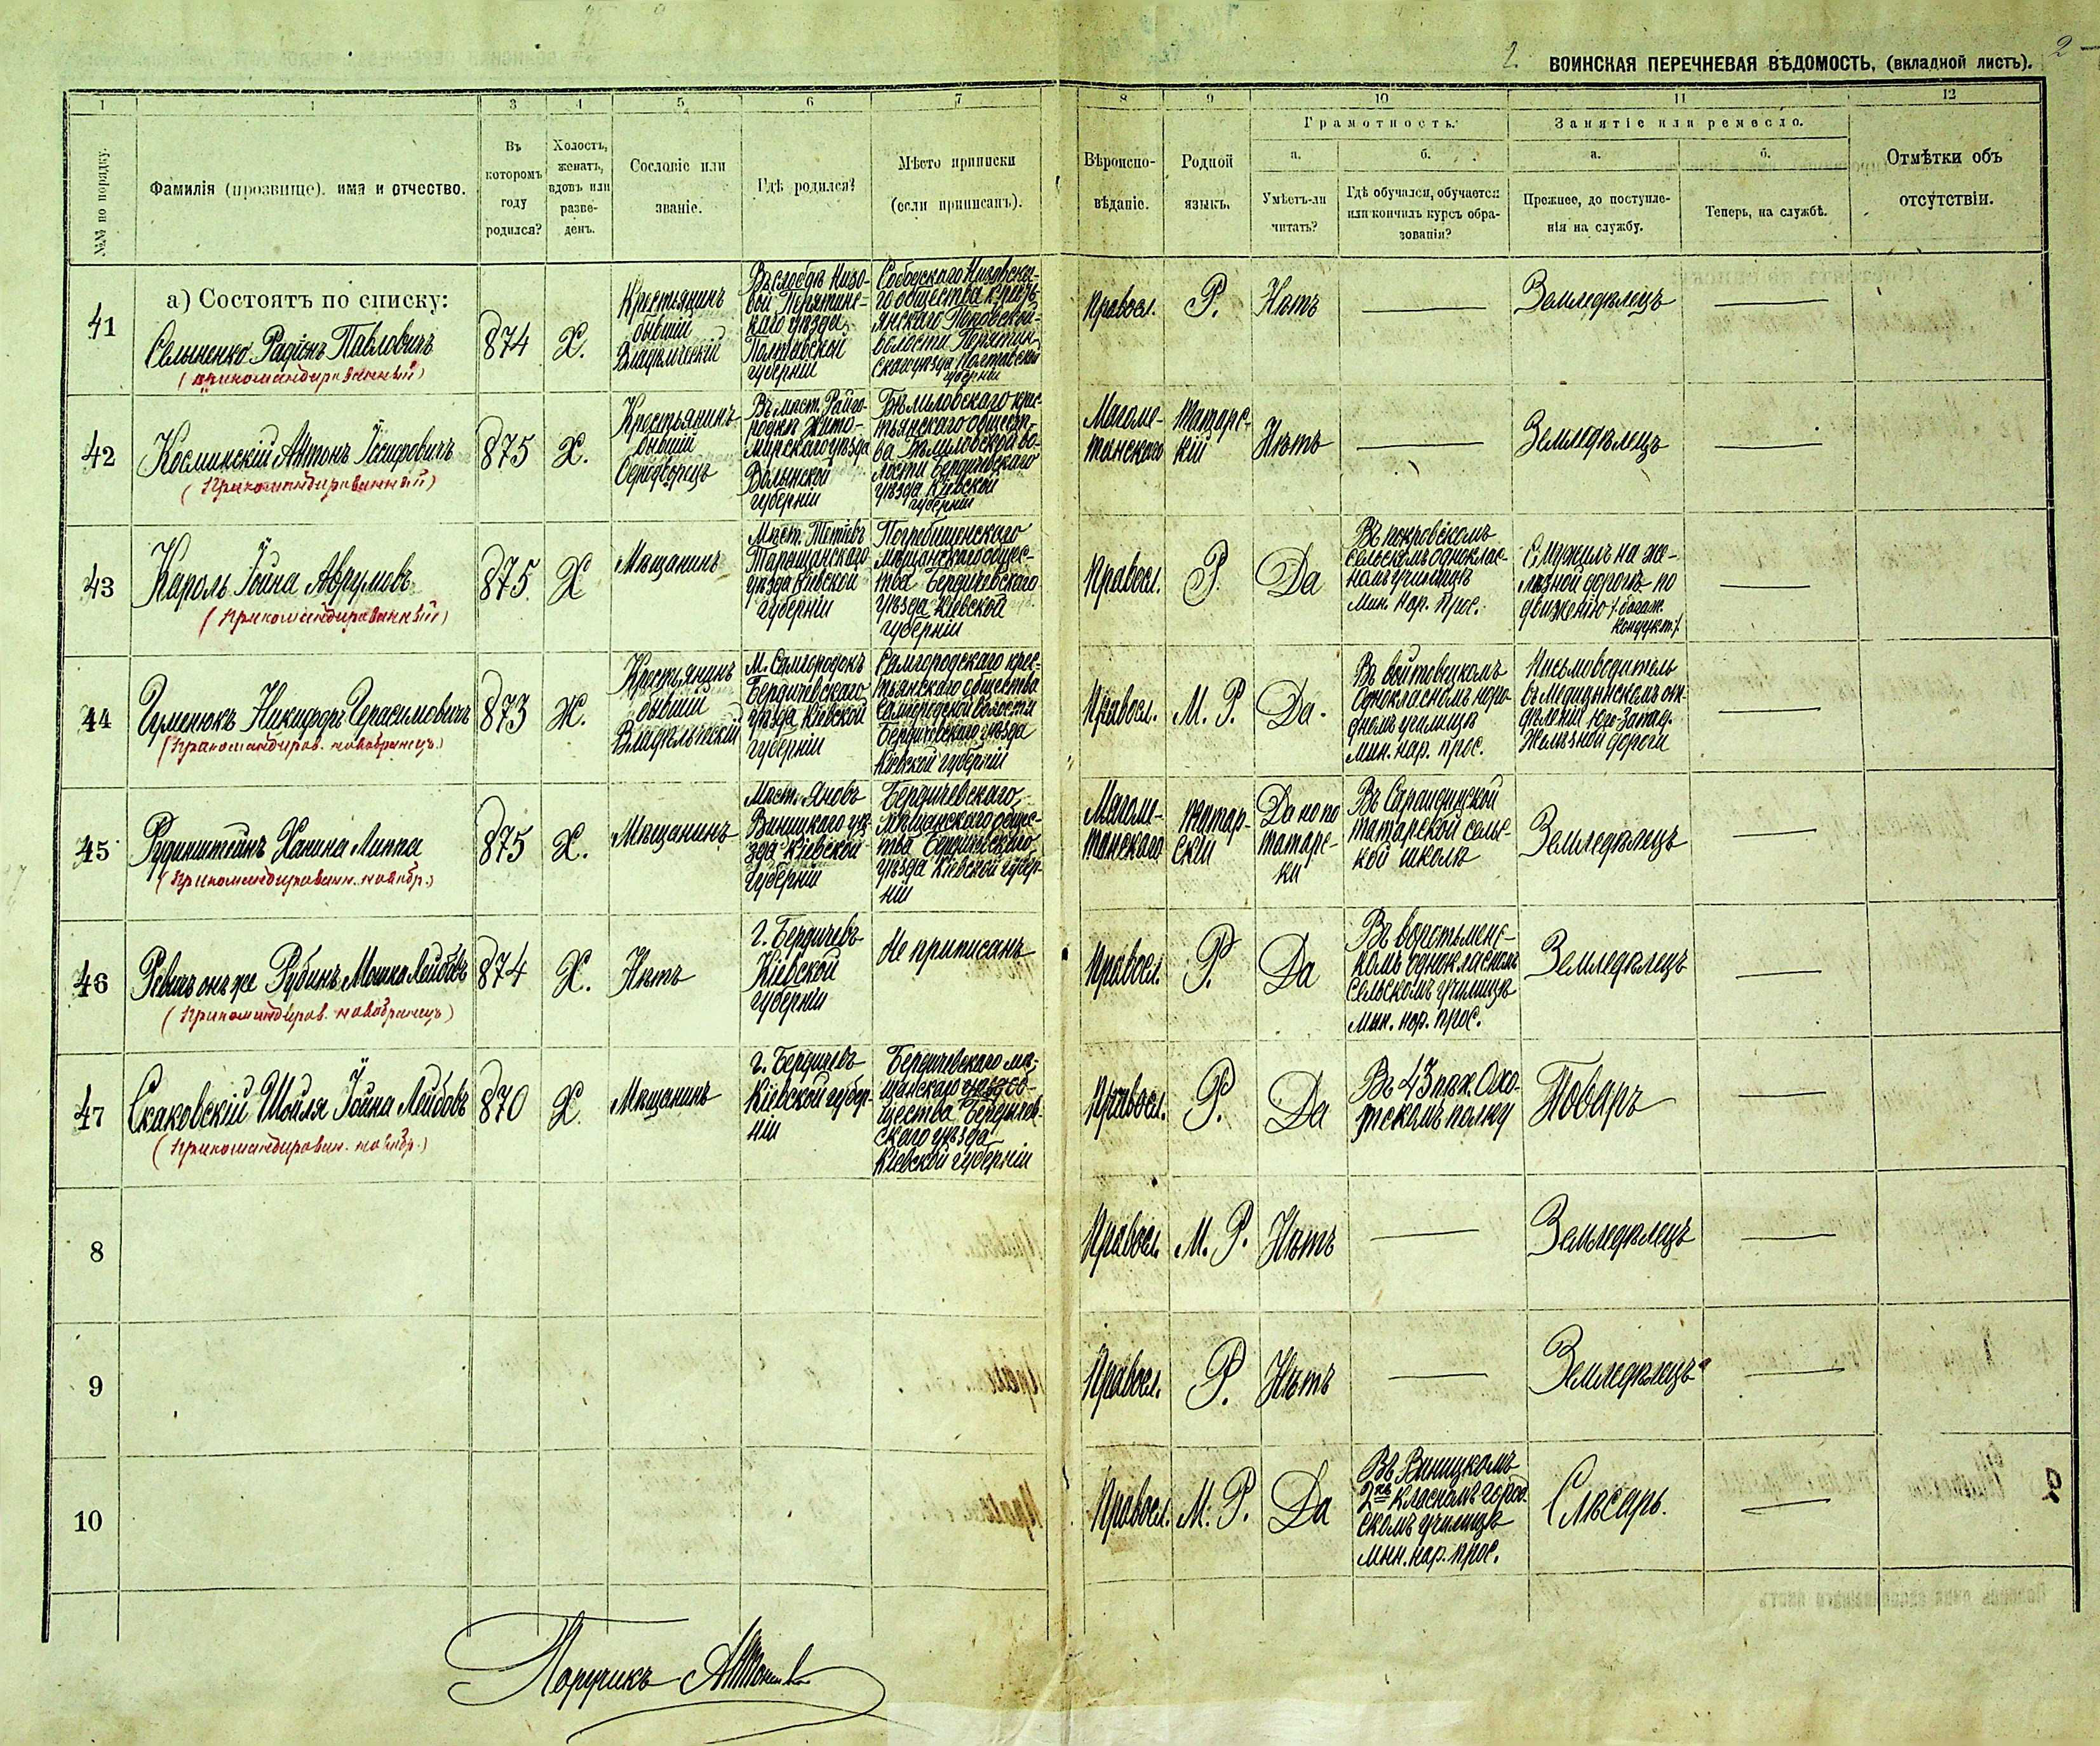 2.
ВОИНСКАЯ ПЕРЕЧНЕВАЯ ВѢДОМОСТЬ, (вкладной листъ).
2
1
3
4
5
6
7
8
9
10
11
12
№№ по порядку.
Фамилія (прозвище). имя и отчество.
Въ
которомъ
году
родился?
Холостъ,
женатъ,
вдовъ или
разве-
денъ.
Сословіе или
званіе.
Гдѣ родился?
Мѣсто приписки
(если приписанъ).
Вѣроиспо-
вѣданіе.
Родной
языкъ.
Грамотность.
а.
б.
Умѣетъ-ли
читать?
Гдѣ обучался, обучается
или кончилъ курсъ обра-
зованія?
Занятіе или ремесло.
а.
б.
Прежнее, до поступле-
нія на службу.
Теперь, на службѣ.
Отмѣтки объ
отсутствіи.
41
а) Состоятъ по списку:
Радіонъ Павловичъ
(прикомандированный)
874
Х.
Крестьянинъ
бывшій
Владѣльческій
Въ слободѣ Низо-
вой Пирятинс-
каго уѣзда
Полтавской
губерніи
го общества кресть-
янскаго Покровской
волости Пирятин-
скаго уѣзда Полтавской
губерніи
Правосл.
Р.
Нѣтъ
Земледѣлецъ
42
Косминскій Антонъ Іосифовичъ
(Прикомандированный)
875
Х.
Крестьянинъ
бывшій
Однодворецъ
Въ мѣст. Райго-
родкѣ Жито-
мирскаго уѣзда
Волынской
губерніи
Бѣлиловскаго крес-
тьянскаго общест-
ва Бѣлиловской во-
лости Бердичевскаго
уѣзда Кіевской
губерніи
Магоме-
танскаго
Татарс-
кій
Нѣтъ
Земледѣлецъ
43
Кароль Іойна Аврумовъ
(Прикомандированный)
875
Х
Мѣщанинъ
Мѣст. Тетіевъ
Таращанскаго
уѣзда Кіевской
губерніи
Погребищенскаго
мѣщанскаго общес-
тва Бердичевскаго
уѣзда Кіевской
губерніи
Правосл.
Р.
Да
Въ покровскомъ
сельскомъ одноклас-
номъ училищѣ
Мин. Нар. Прос.
Служилъ на же-
лѣзной дорогѣ по
движенію /: багаж.
кондукт :/
44
Гуменюкъ Никифоръ Герасимовичъ
(Прикомандиров. новобранецъ.)
873
Ж.
Крестьянинъ
бывшій
Владѣльческій
М. Самгородокъ
Бердичевскаго
уѣзда Кіевской
губерніи
Самгородскаго крес-
тьянскаго общества
Самгородской волости
Бердичевскаго уѣзда
Кіевской губерніи
Правосл.
М. Р.
Да.
Въ войтовецкомъ
Однокласномъ наро-
дномъ училищѣ
мин. нар. прос.
Письмоводитель
въ медицинскомъ от-
дѣленіи Юго-Запад.
Желѣзной дороги
45
Рудинштейнъ Ханина Липпа
(Прикомандированн. новобр.)
875
Х.
Мѣщанинъ
Мѣст. Яновъ
Виницкого уѣ-
зда Кіевской
губерніи
Бердичевскаго
мѣщанскаго общес-
тва Бердичевскаго
уѣзда Кіевской губер-
ніи
Магоме-
танскаго
татар-
скій
Да но по
татарс-
ки
Въ
татарской сельс-
кой школѣ
Земледѣлецъ
46
Ревичъ онъ же Рубинъ Мошко Лейбовъ
(Прикомандиров. новобранецъ)
874
Х.
Нѣтъ
г. Бердичевъ
Кіевской
губерніи
Не приписанъ
Правосл.
Р.
Да
Въ
комъ однокласномъ
сельскомъ училищѣ
мин. нар. прос.
Земледѣлецъ
47
Скаковскій Шойля Іойна Лейбовъ
(Прикомандирован. новобр.)
870
Х.
Мѣщанинъ
г. Бердичевъ
Кіевской губер-
ніи
Бердичевскаго мѣ-
щанскаго об-
щества Бердичев-
скаго уѣзда
Кіевской губерніи
Правосл.
Р.
Да
Въ 43 пѣх. Охо-
тскомъ полку
Поваръ
8
Правосл.
М. Р.
Нѣтъ
Земледѣлецъ
9
Правосл.
Р.
Нѣтъ
Земледѣлецъ
10
Правосл.
М. Р.
Да
Въ Виницкомъ
2хъ класномъ город-
скомъ училищѣ
мин. нар. прос.
Слѣсарь.
Поручикъ